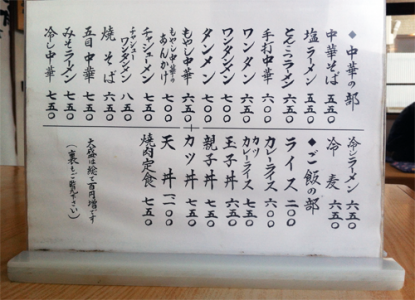 ◆中華の部
中華そば 五五〇
塩ラーメン 五五〇
とんこつラーメン 六五〇
手打中華 六〇〇
ワンタン 六五〇
ワンタンメン 七〇〇
タンメン 七〇〇
もやし中華 六五〇
もやし中華のあんかけ 七〇〇
チャシューメン 七五〇
チャシューワンタンメン 八五〇
焼そば 六五〇
五目中華 七五〇
みそラーメン 七五〇
冷し中華 七五〇
冷しラーメン 六五〇
冷麦 六五〇
◆ご飯の部
ライス 二〇〇
カレーライス 六〇〇
カツカレーライス 七五〇
玉子丼 六五〇
親子丼 七五〇
カツ丼 七五〇
天丼 一一〇〇
焼肉定食 七五〇
大盛は総て百円増です
(裏もご覧下さい)